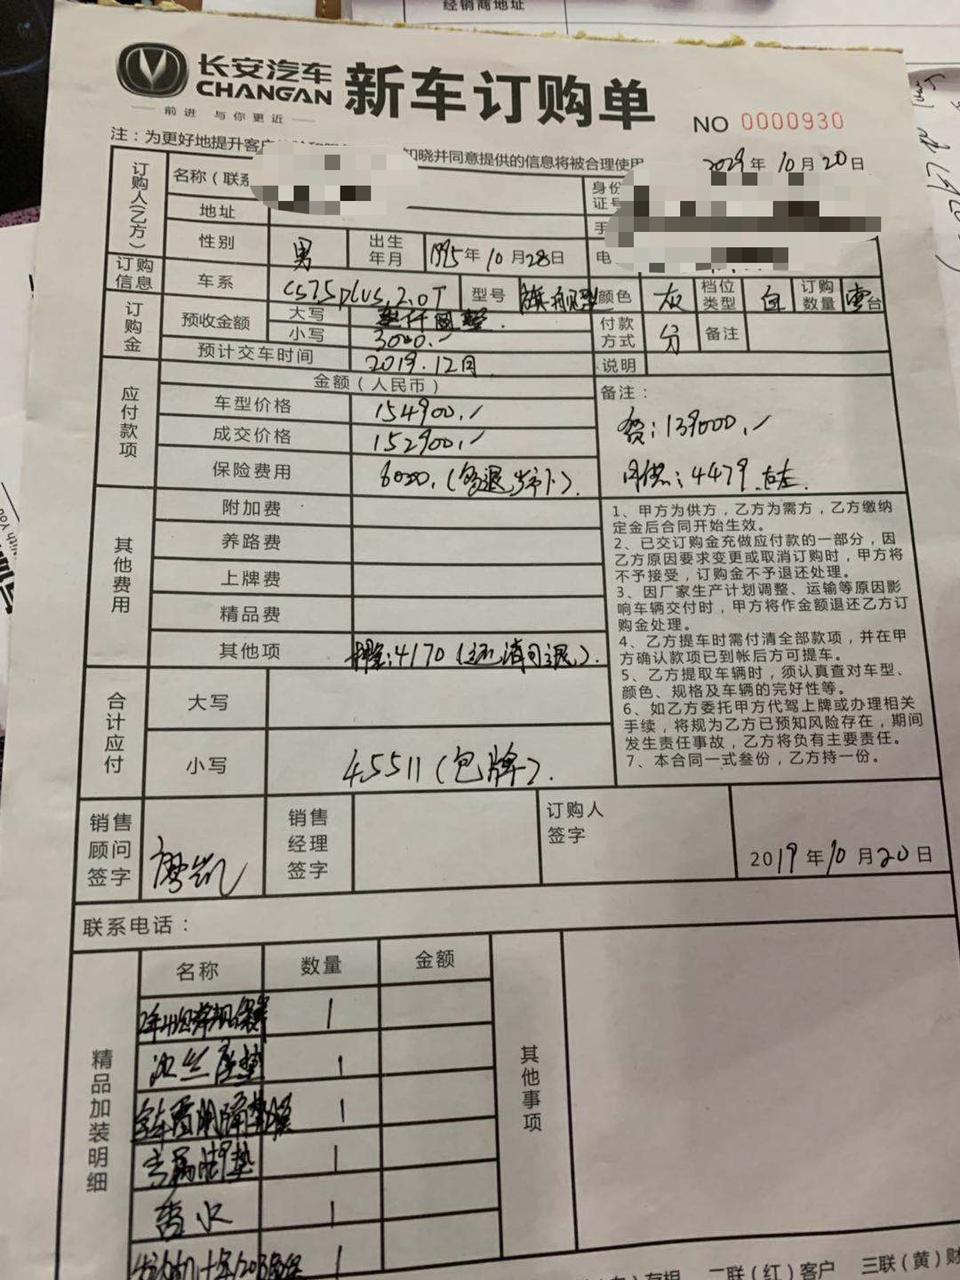 经销商地址
长安汽车
CHANGAN
前进 与你更近
新车订购单
NO 0000930
注：为更好地提升客户 知晓并同意提供的信息将被合理使用
2019年10月20日
订购人(乙方)
名称（联系
身份
证号
地址
手
性别 男 出生年月 1995年10月28日 电
订购信息
车系 CS75plus 2.0T 型号 旗舰型 颜色 灰 档位类型 自 订购数量 壹台
订购金
预收金额 大写 叁仟圆整.
小写 3000.
付款方式 分 备注
预计交车时间 2019.12月
说明
应付款项
金额（人民币）
备注：
车型价格 154900.
成交价格 152900.
保险费用 6000.
贷：139000.
月供：4479.左右
其他费用
附加费
养路费
上牌费
精品费
其他项 押金：4170（还清可退）.
1、甲方为供方，乙方为需方，乙方缴纳
定金后合同开始生效。
2、已交订购金充做应付款的一部分，因
乙方原因要求变更或取消订购时，甲方将
不予接受，订购金不予退还处理。
3、因厂家生产计划调整、运输等原因影
响车辆交付时，甲方将作金额退还乙方订
购金处理。
4、乙方提车时需付清全部款项，并在甲
方确认款项已到帐后方可提车。
5、乙方提取车辆时，须认真查对车型、
颜色、规格及车辆的完好性等。
6、如乙方委托甲方代驾上牌或办理相关
手续，将规为乙方已预知风险存在，期间
发生责任事故，乙方将负有主要责任。
7、本合同一式叁份，乙方持一份。
合计应付
大写
小写 45511（包牌）.
销售顾问签字 廖凯
销售经理签字
订购人签字
2019年10月20日
联系电话：
精品加装明细
名称 数量 金额
其他事项
1
冰丝座垫 1
1
专属脚垫 1
香水 1
1
存根 二联（红）客户 三联（黄）财